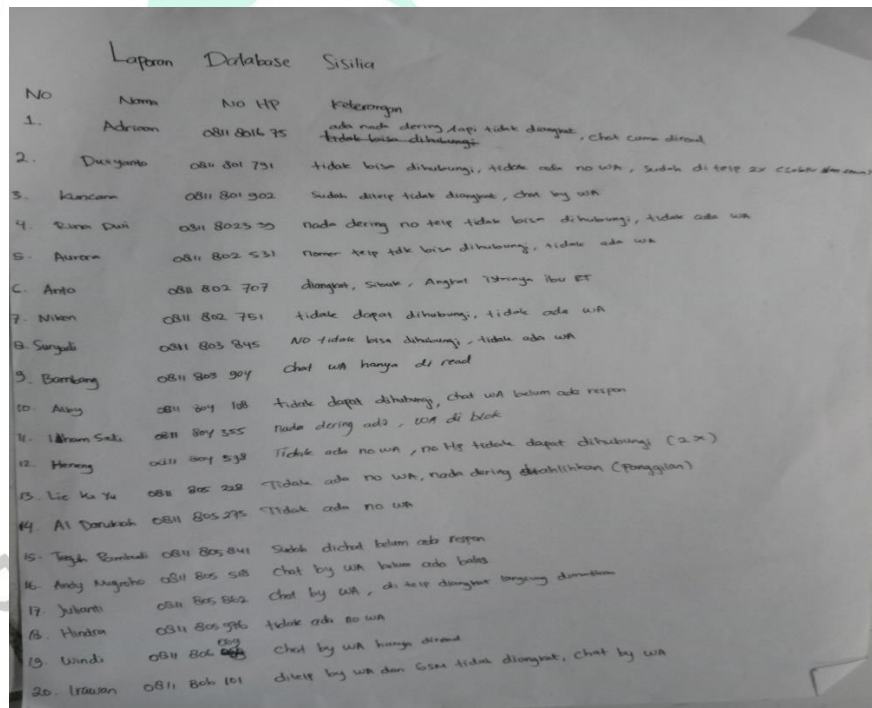 Laporan Database Sisilia
No Nama No HP Keterangan
1. Adriaan 0811 8016 75 ada nada dering tapi tidak diangkat, chat cuma diread
tidak bisa dihubungi
2. Duryanto 0811 801 791 tidak bisa dihubungi, tidak ada no WA, sudah di telp 2x
3. Kuncara 0811 801 902 Sudah ditelp tidak diangkat, chat by WA
4. Dwi 0811 8023 39 nada dering no telp tidak bisa dihubungi, tidak ada WA
5. Aurora 0811 802 531 nomer telp tdk bisa dihubungi, tidak ada WA
6. Anto 0811 802 707 diangkat, Sibuk, Angkat istrinya ibu RT
7. Niken 0811 802 751 tidak dapat dihubungi, tidak ada WA
8. Suryadi 0811 803 845 NO tidak bisa dihubungi, tidak ada WA
9. Bambang 0811 803 904 Chat WA hanya di read
10. 0811 804 108 tidak dapat dihubungi, chat WA belum ada respon
11. Idham 0811 804 355 nada dering ada, WA di blok
12. Heneng 0811 804 538 Tidak ada no WA, no Hp tidak dapat dihubungi (2x)
13. Lie Ka Yu 0811 805 228 Tidak ada no WA, nada dering dialihkan (Panggilan)
14. Al 0811 805 275 Tidak ada no WA
15. Teguh 0811 805 841 Sudah dichat belum ada respon
16. Andy Nugroho 0811 805 518 Chat by WA belum ada balas
17. Julianti 0811 805 862 Chat by WA, di telp diangkat langsung dimatikan
18. Hindra 0811 805 976 tidak ada no WA
19. Windi 0811 806 069 Chat by WA hanya diread
20. Irawan 0811 806 101 ditelp by WA dan GSM tidak diangkat, chat by WA